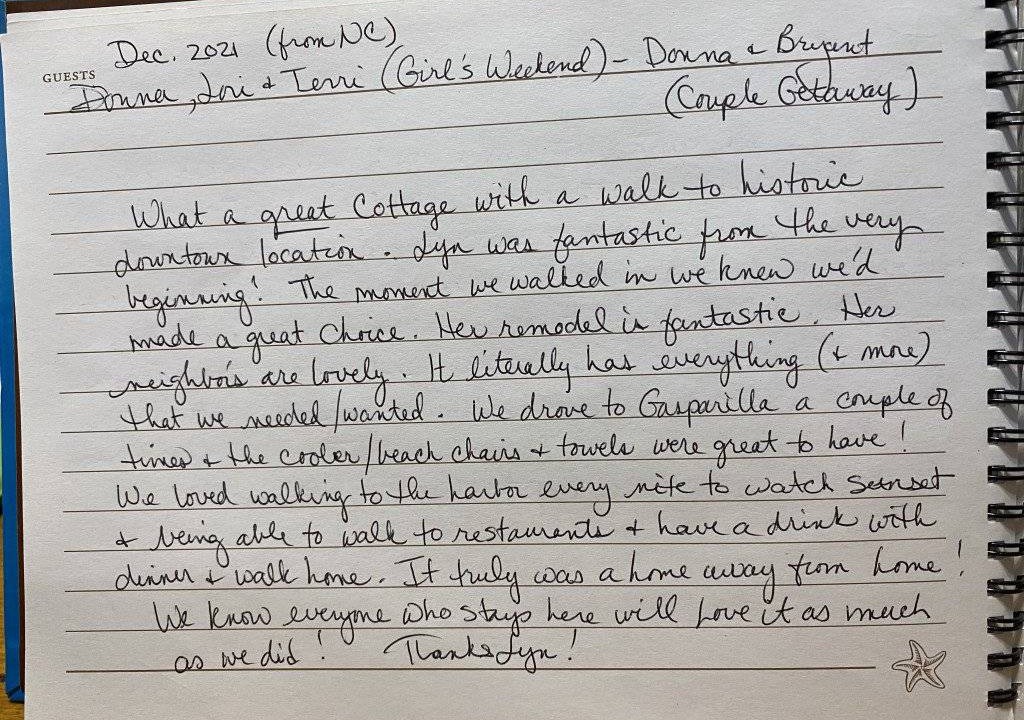 Dec. 2021 (from NC)
GUESTS
Donna, Lori & Terri (Girl's Weekend) - Donna & Bryant
(Couple Getaway)
What a great Cottage with a walk to historic
downtown location. Lyn was fantastic from the very
beginning! The moment we walked in we knew we'd
made a great choice. Her remodel is fantastic. Her
neighbors are lovely. It literally has everything (& more)
that we needed/wanted. We drove to Gasparilla a couple of
times & the cooler/beach chairs & towels were great to have!
We loved walking to the harbor every nite to watch sunset
& being able to walk to restaurants & have a drink with
dinner & walk home. It truly was a home away from home!
We know everyone who stays here will love it as much
as we did! Thanks Lyn!